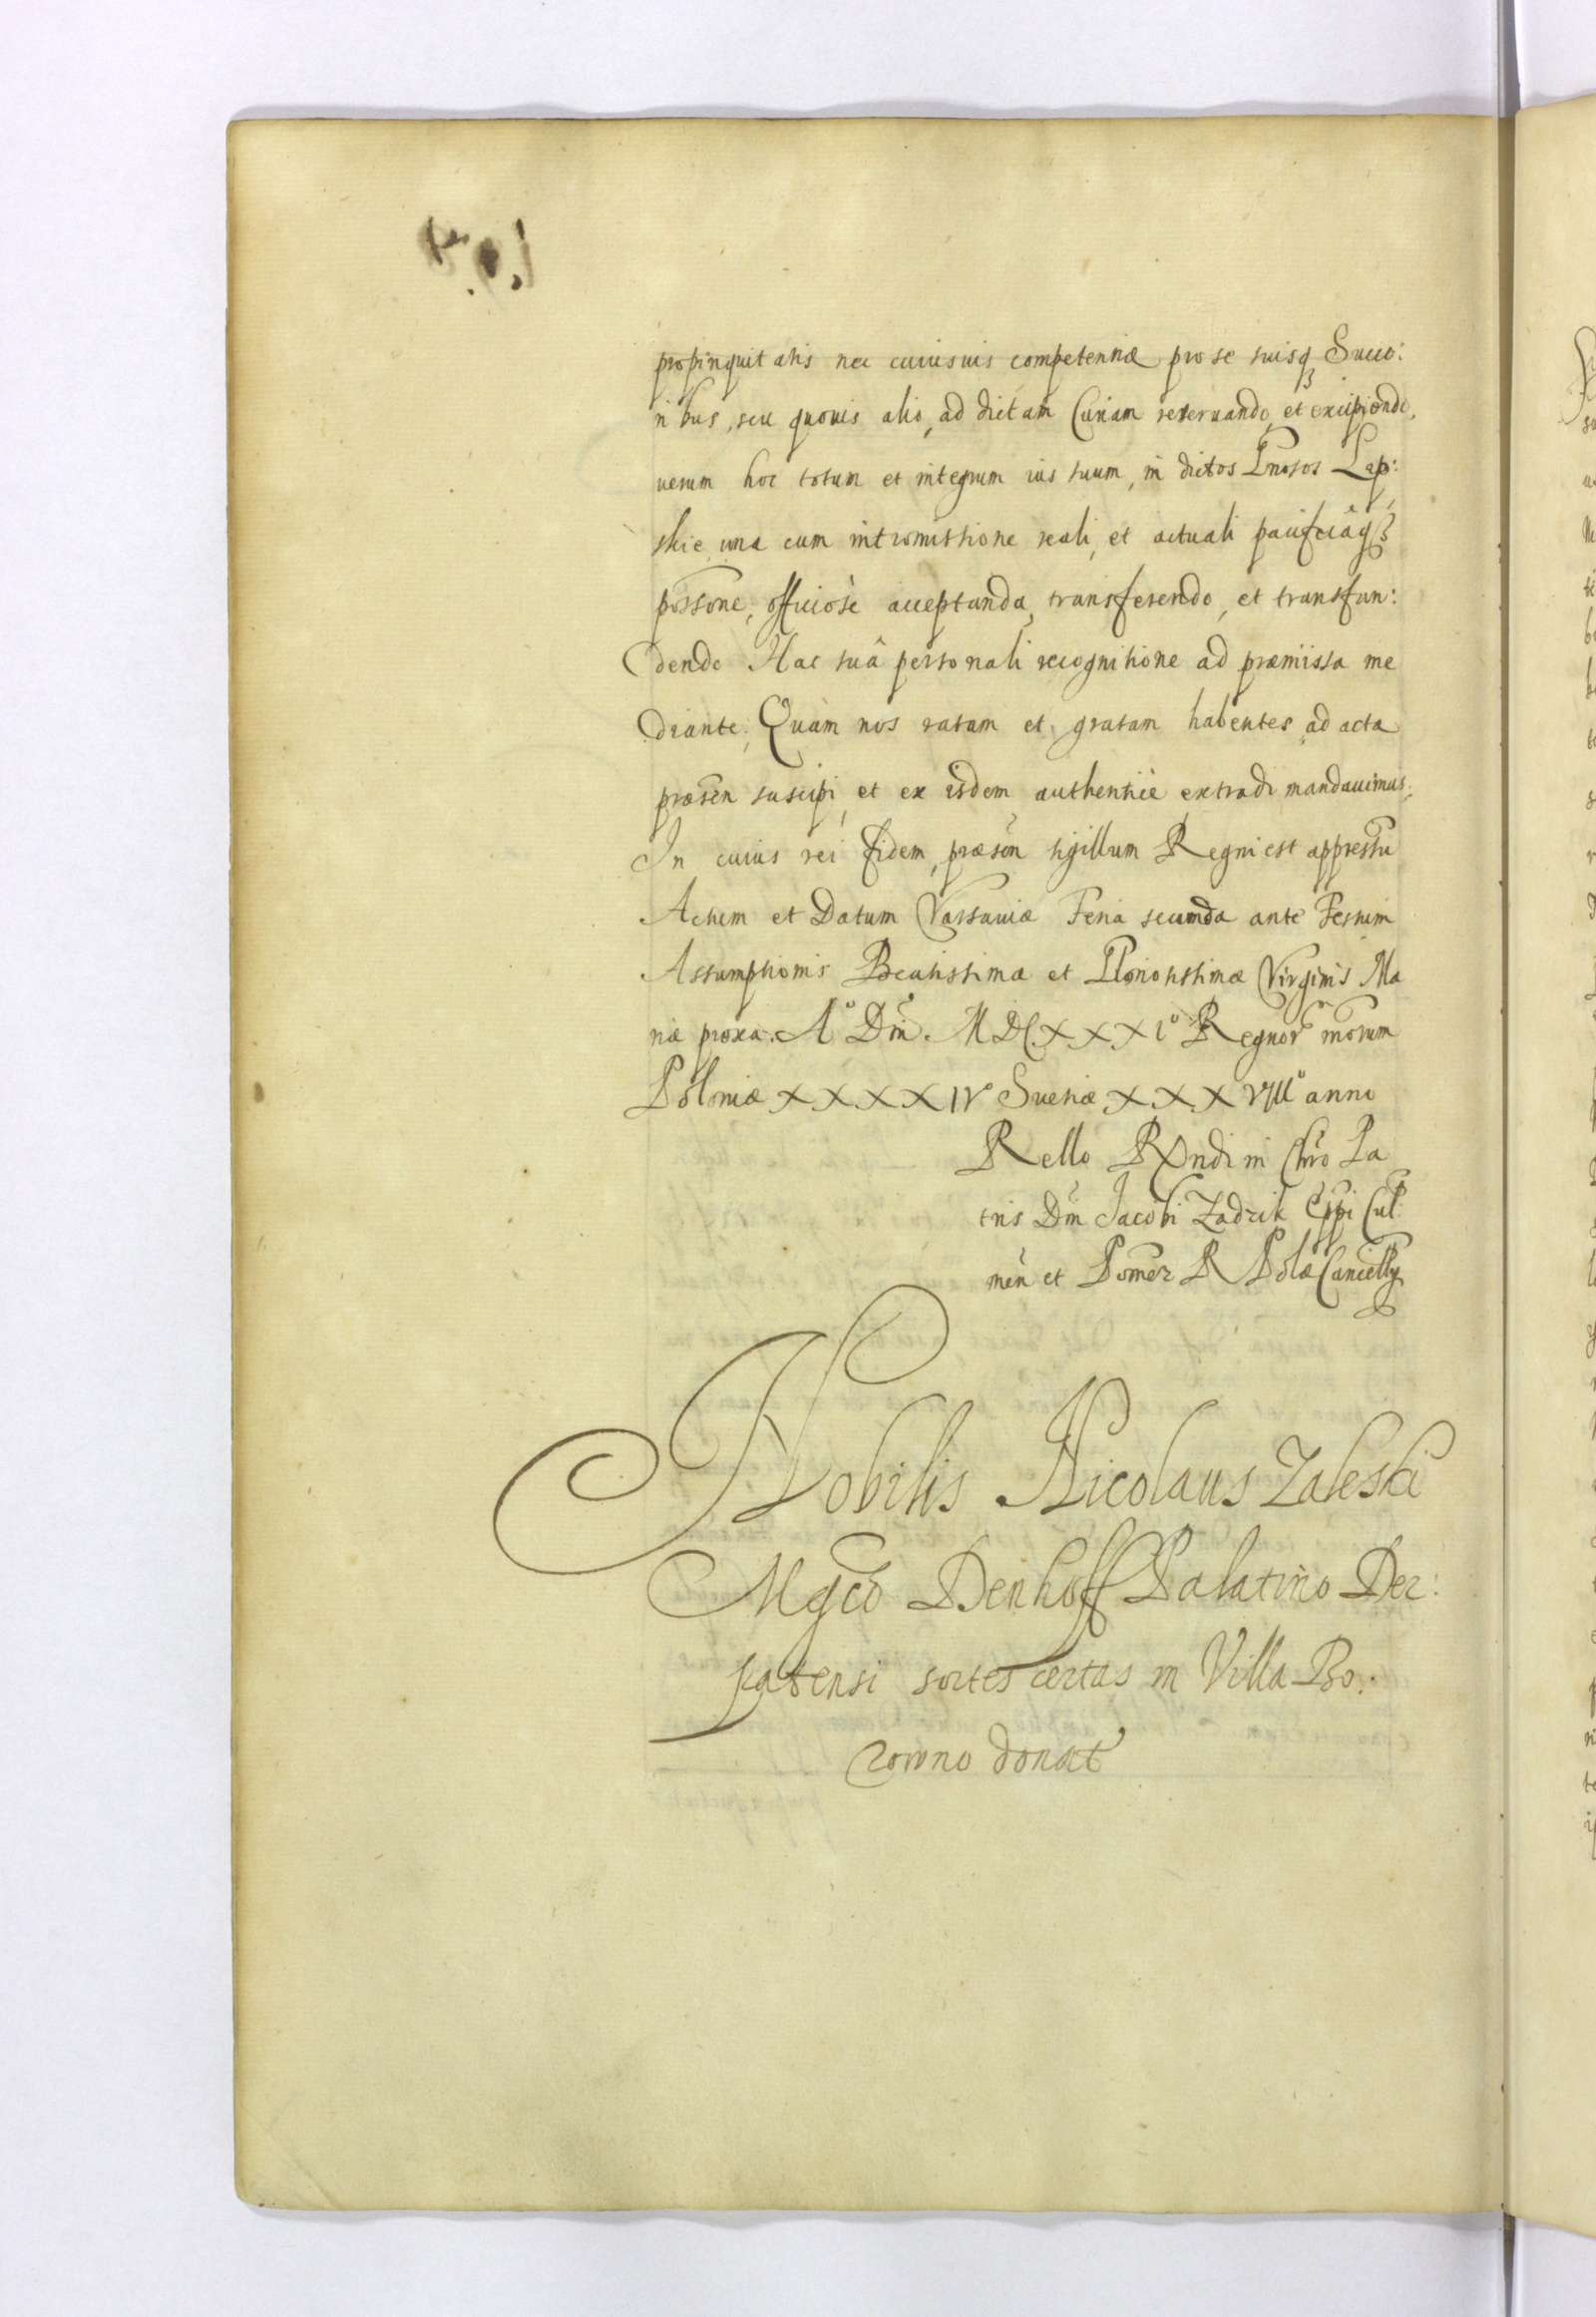 propinquitatis nec cuiusvis competentiæ pro se suisq3 Succo:
ribus, seu quovis alio, ad dictam Curiam reservando, et excipiendo,
verum hoc totum et integrum ius suum, in dictos Gnosos Lap:
skie una cum intromissione reali, et actuali pacificâq3
possone, officiosè acceptanda, transferendo, et transfun:
dendo Hac suâ personali recognitione ad præmissa me
diante; Quam nos ratam et gratam habentes, ad acta
præsen suscipi, et ex iisdem authenticè extradi mandavimus.
In cuius rei fidem, præsen sigillum Regni est appressu
Actum et Datum Varsaviæ Feria secunda ante Festum
Assumptionis Beatissimæ et Gloriosissimæ Virginis Ma
riæ proxa. Aº Dni. MDCXXXIº Regnor nrorum
Poloniæ XXXXIV Sueciæ XXXVIIIº anno
Rello RXndi in Chro Pa
tris Dni Jacobi Zadzik Eppi Cul:
men et Pomez R Polæ Cancelly
Nobilis Nicolaus Zaleski
Mgco Denhoff Palatino Der:
patensi sortes certas in Villa Bo:
rowno donat